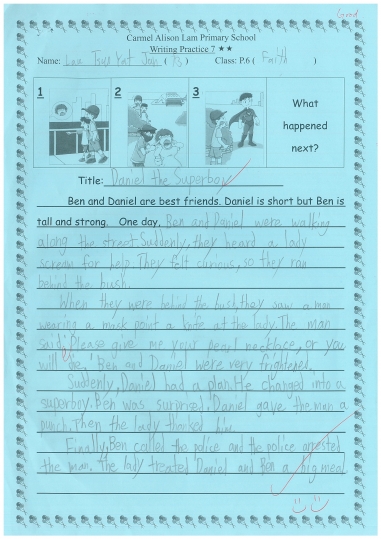 Good
Carmel Alison Lam Primary School
Writing Practice 7 ★★
Name: Lau Tsus Yat Jon ( 13 ) Class: P.6 ( Faith )
1 2 3
What
happened
next?
Title: Daniel the Superboy
Ben and Daniel are best friends. Daniel is short but Ben is
tall and strong. One day, Ben and Daniel were walking
along the street. Suddenly, they heard a lady
scream for help. They felt curious, so they ran
behind the bush.
When they were behind the bush, they saw a man
wearing a mask point a knife at the lady. The man
said, 'Please give me your pearl necklace, or you
will die.' Ben and Daniel were very frightened.
Suddenly, Daniel had a plan. He changed into a
superboy. Ben was surprised. Daniel gave the man a
punch. Then the lady thanked him.
Finally, Ben called the police and the police arrested
the man. The lady treated Daniel and Ben a big meal.